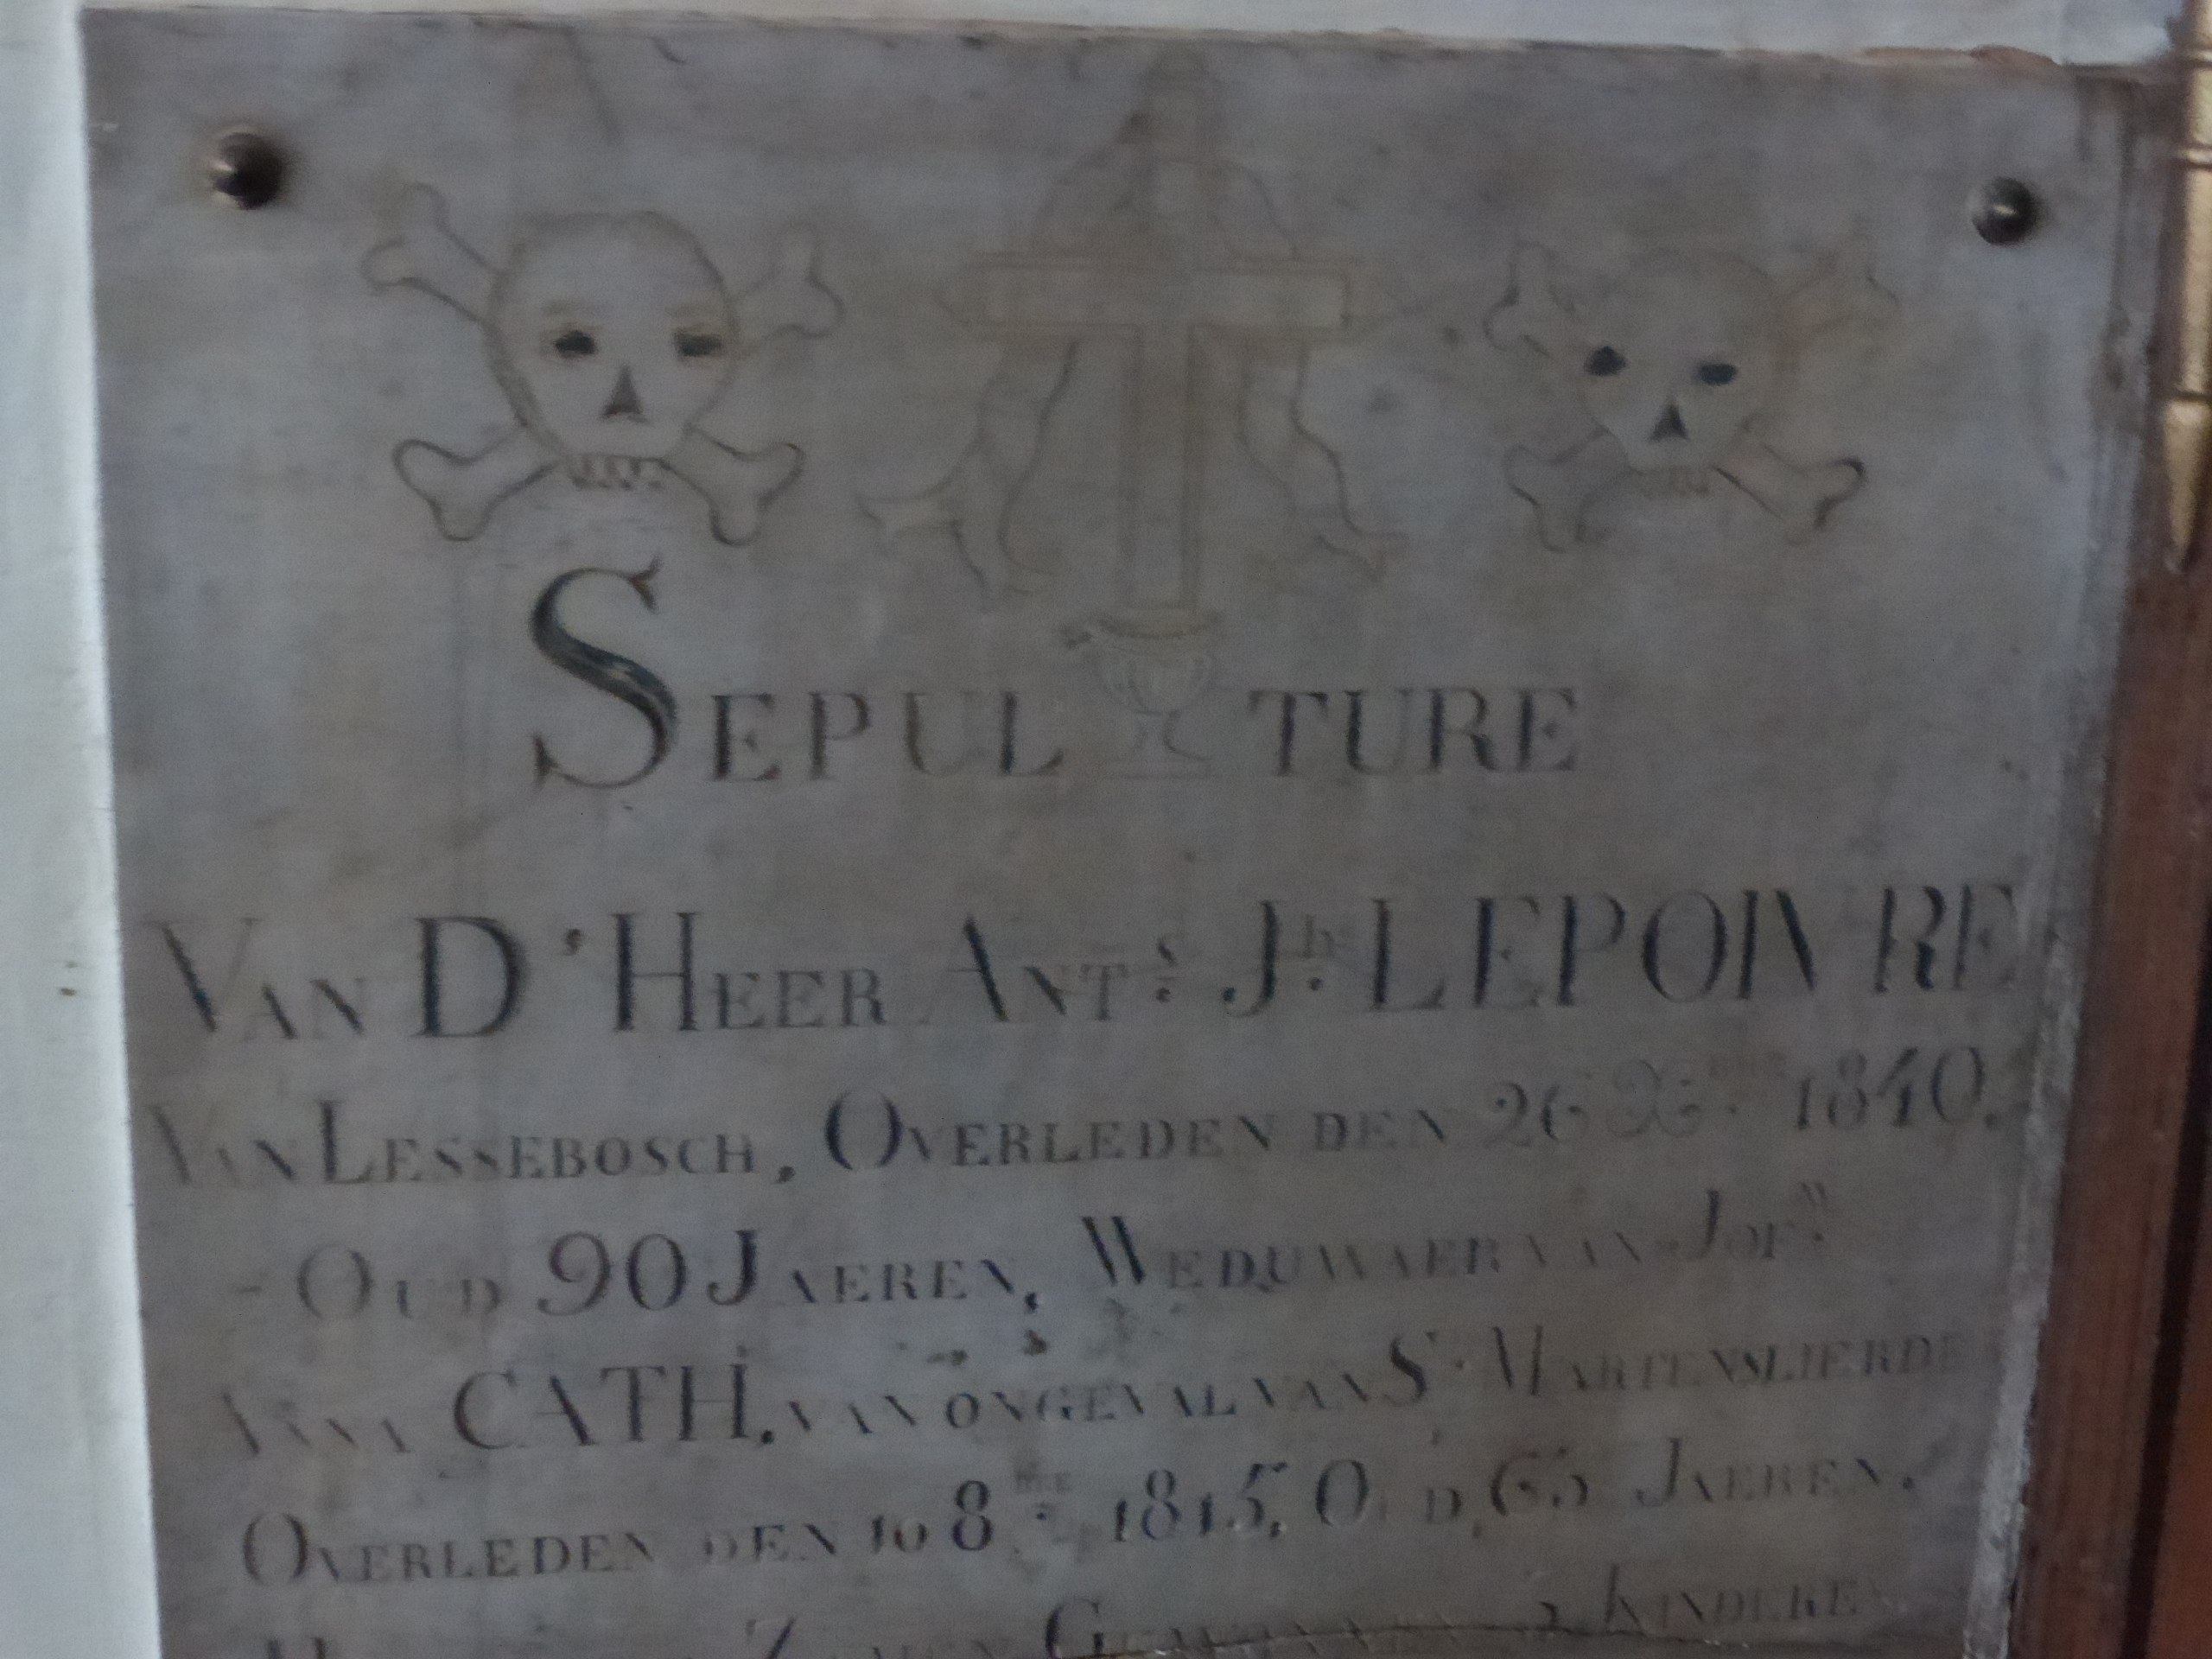 SEPULTURE
VAN D'HEER ANT.s J.ph LEPOIVRE
VAN LESSEBOSCH, OVERLEDEN DEN 26 1840.
- OUD 90 JAEREN, WEDUWAER VAN JOF.w
ANNA CATH. VAN ONGEVAL VAN S.t MARTENSLIERDE
OVERLEDEN DEN 10 8bre 1815, OUD, 65 JAEREN,
GEWONNEN KINDEREN